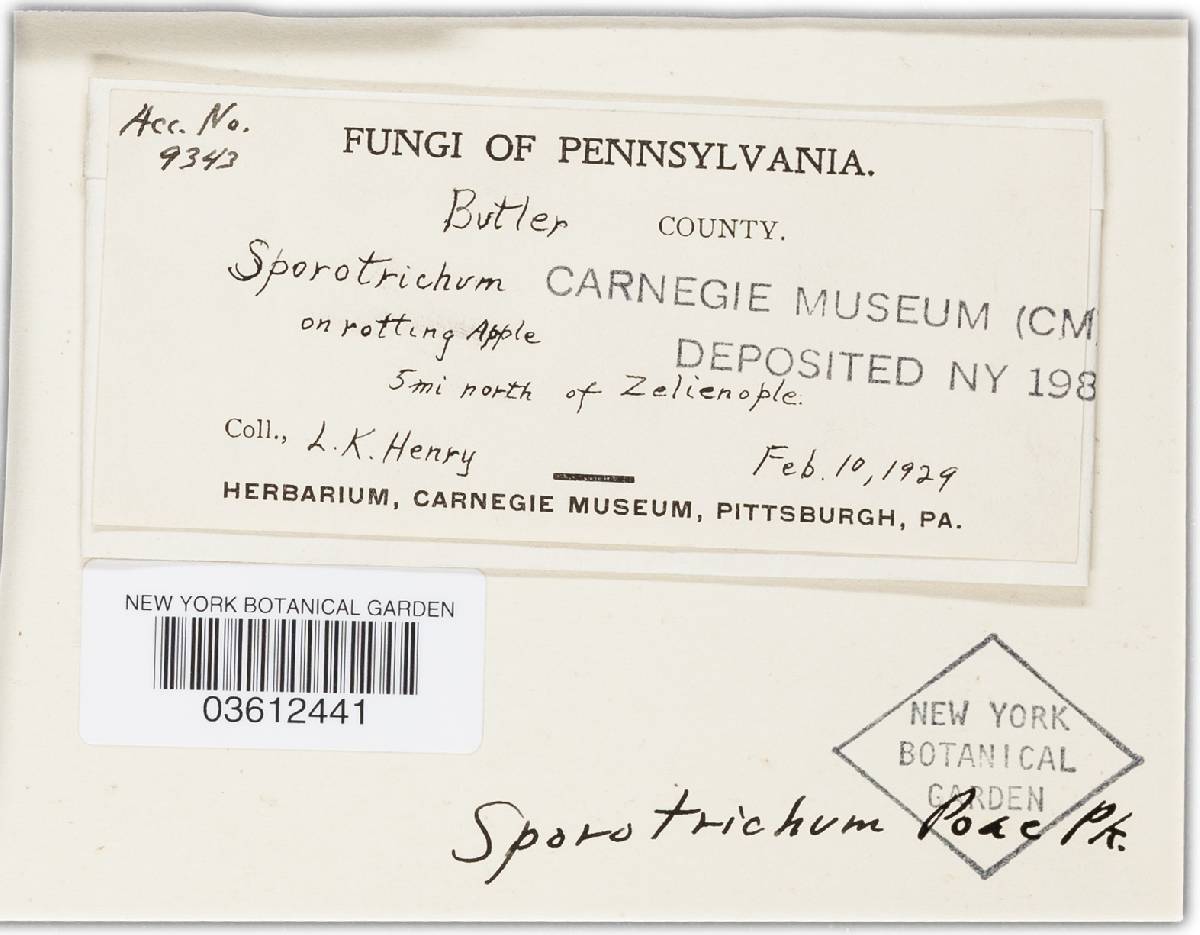 Acc. No.
9343
FUNGI OF PENNSYLVANIA.
Butler COUNTY.
Sporotrichum
CARNEGIE MUSEUM (CM
on rotting Apple
DEPOSITED NY 198
5 mi north of Zelienople.
Coll., L. K. Henry Feb. 10, 1929
HERBARIUM, CARNEGIE MUSEUM, PITTSBURGH, PA.
NEW YORK BOTANICAL GARDEN
03612441
NEW YORK
BOTANICAL
GARDEN
Sporotrichum Poae Pk.